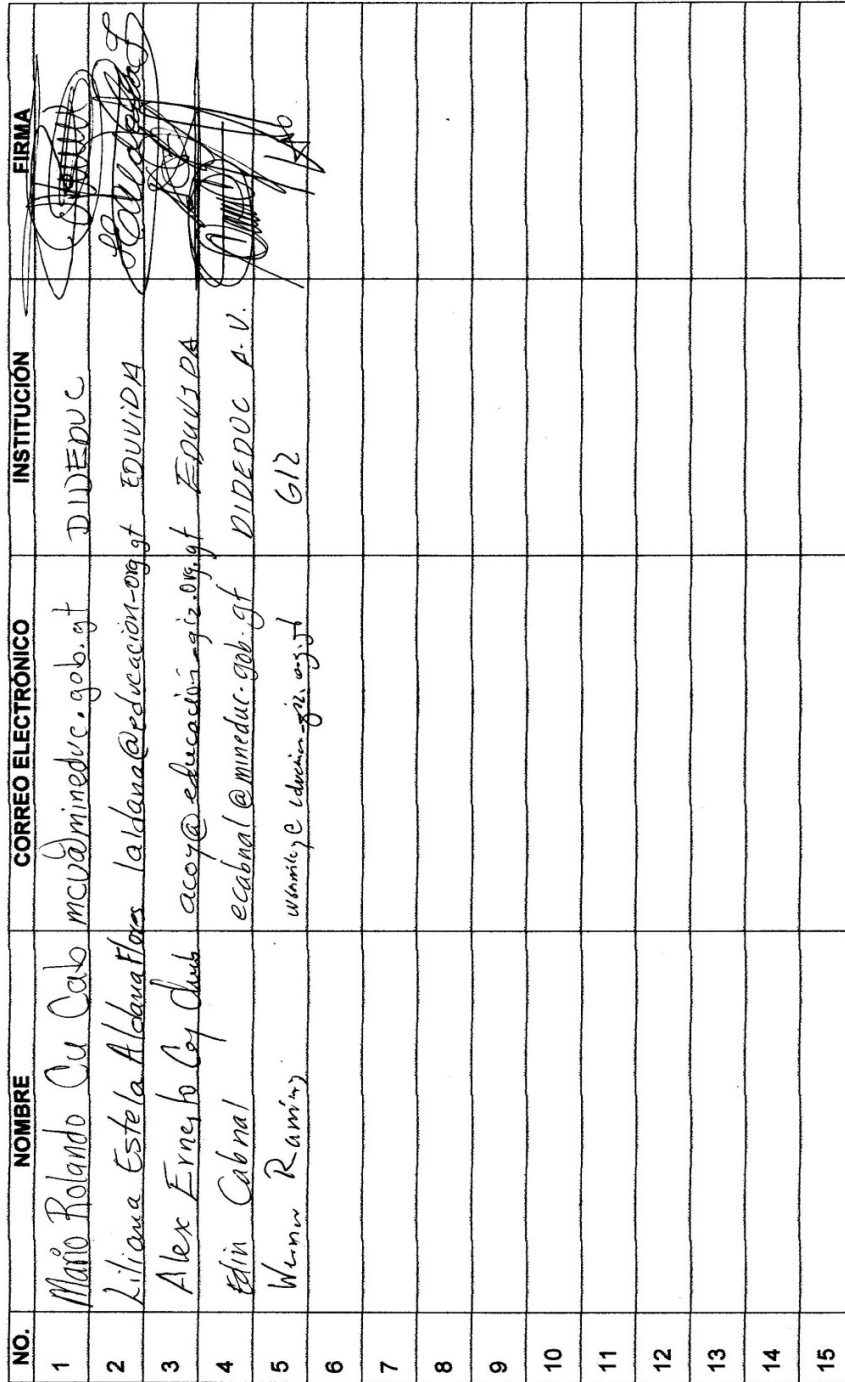 NO. NOMBRE CORREO ELECTRÓNICO INSTITUCIÓN FIRMA
1 Mario Rolando Cu Cab mcu@mineduc.gob.gt DIDEDUC
2 Liliana Estela Aldana Flores laldana@educación-org.gt EDUVIDA
3 Alex Ernesto Coy Chub acoy@educación-giz.org.gt EDUVIDA
4 Edin Cabnal ecabnal@mineduc.gob.gt DIDEDUC A.V.
5 Werner Ramírez GIZ
6
7
8
9
10
11
12
13
14
15